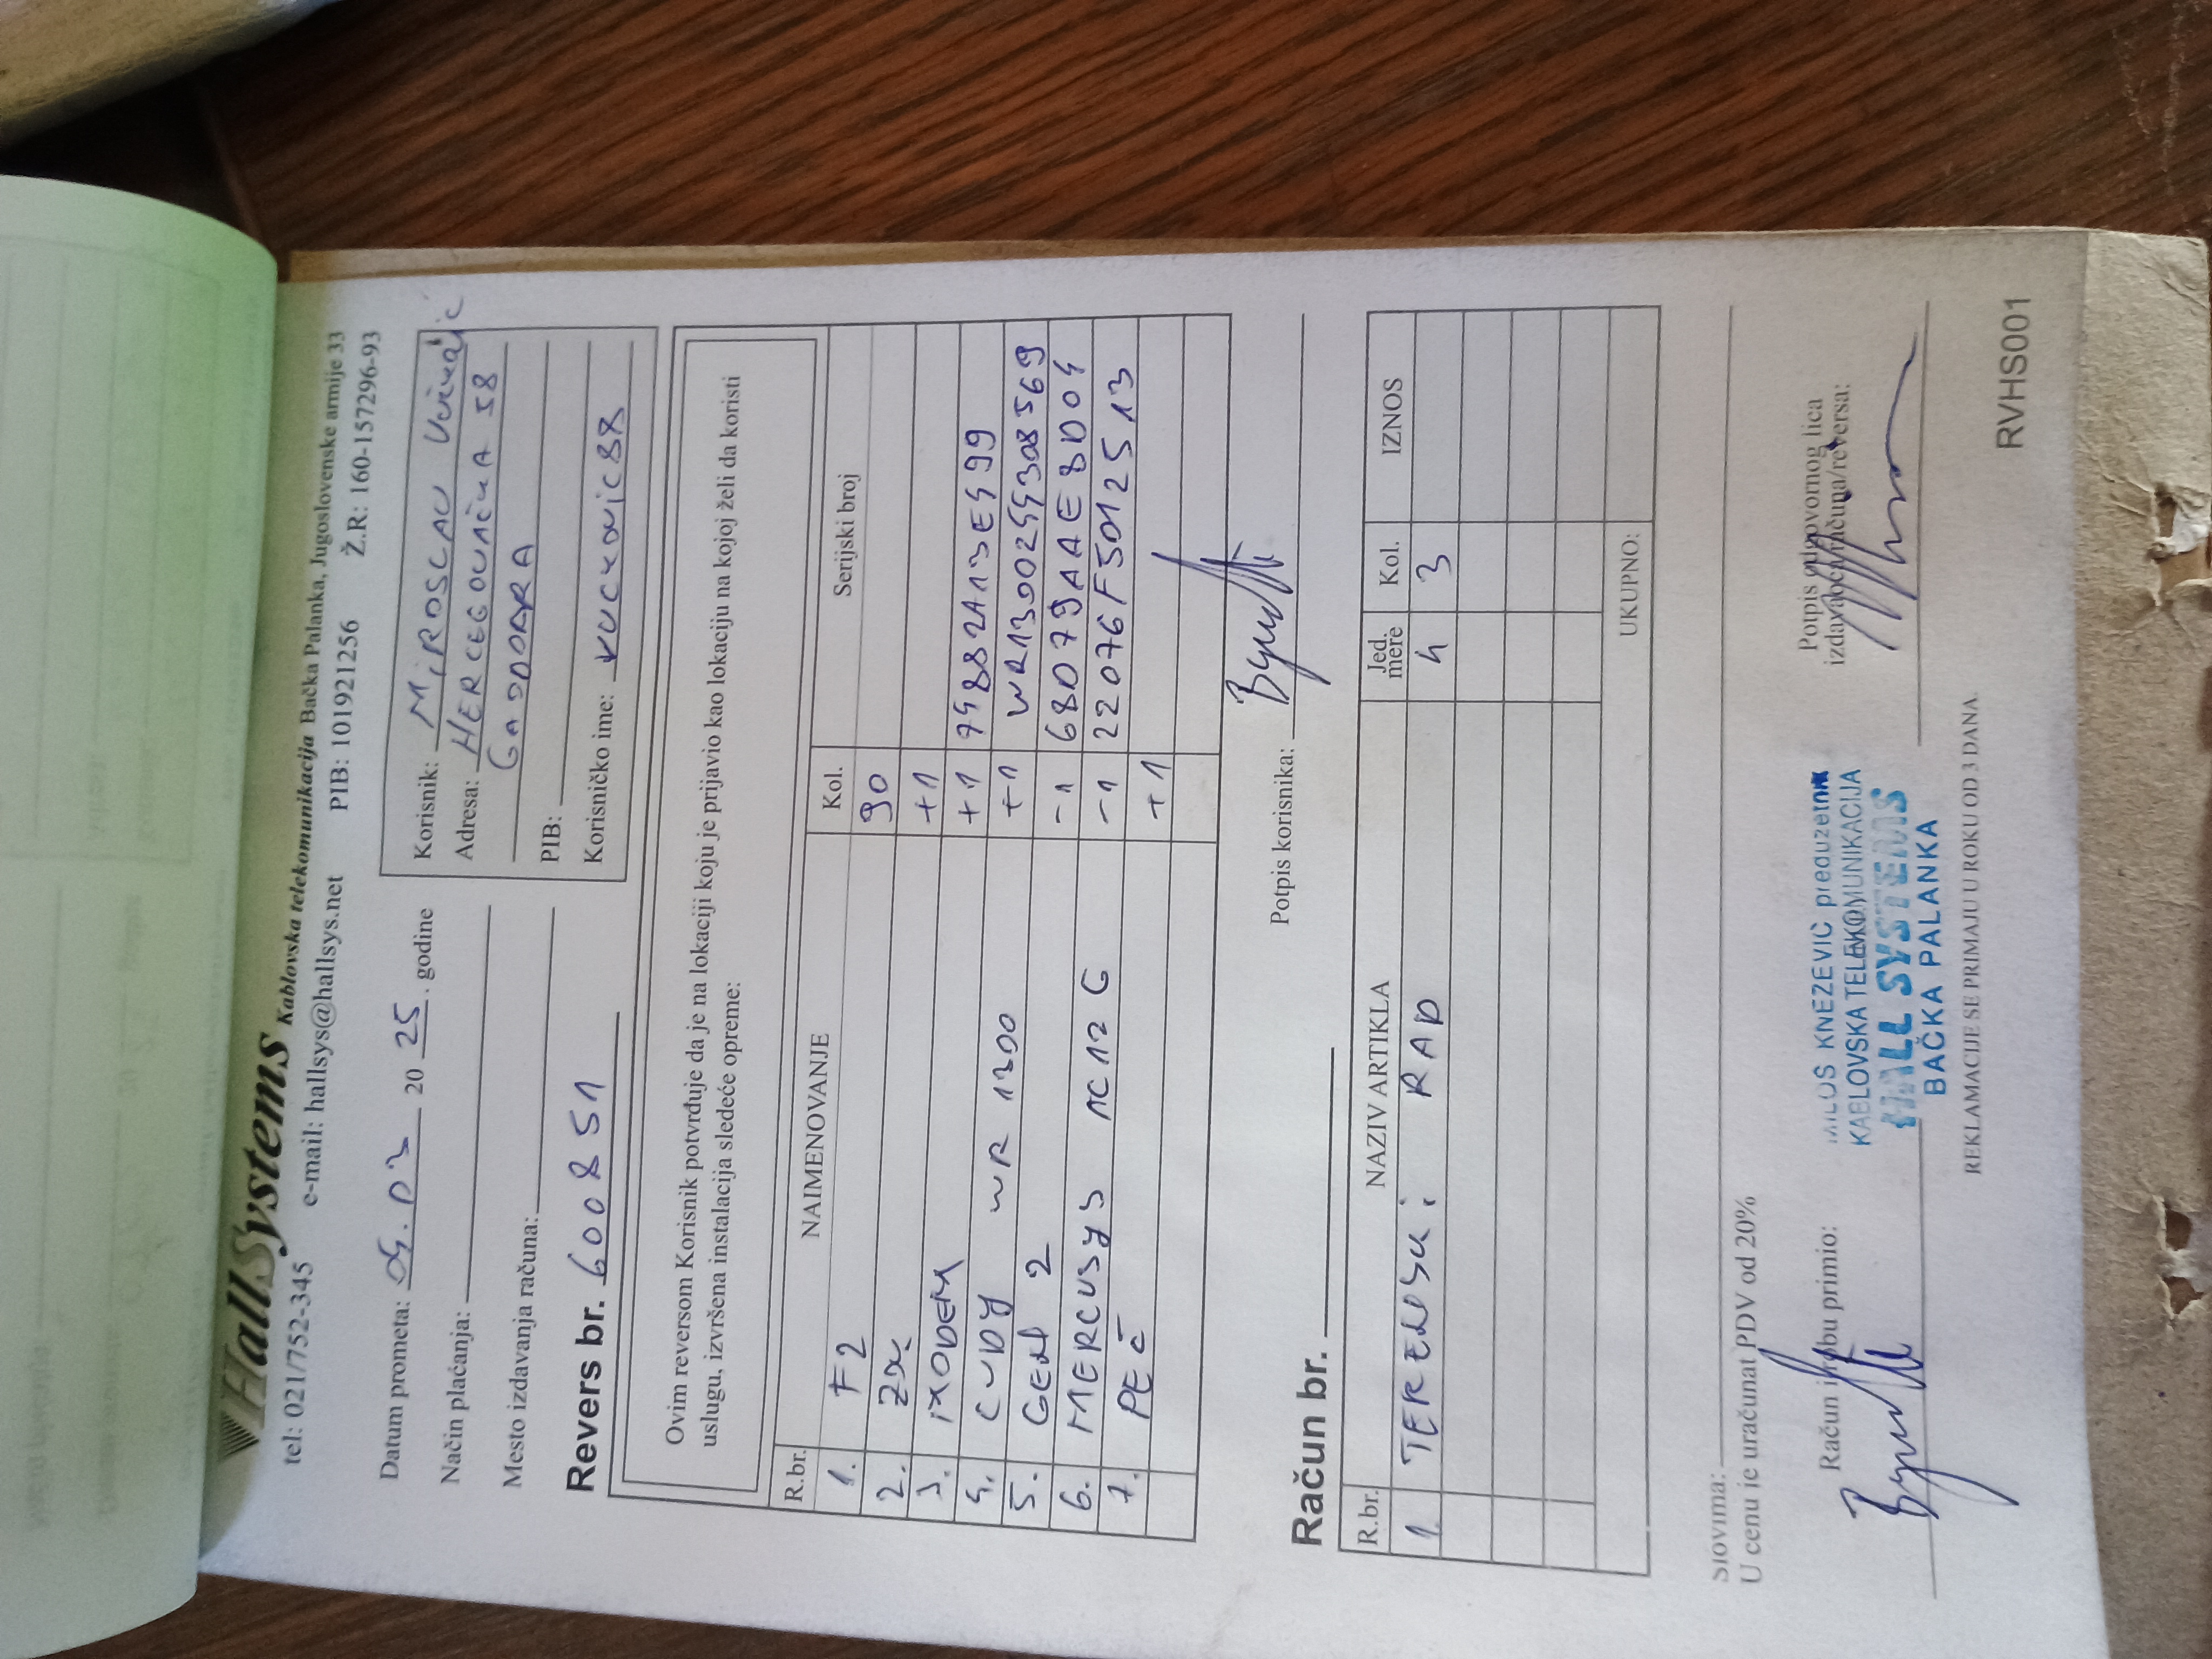 HallSystems Kablovska telekomunikacija Bačka Palanka, Jugoslovenske armije 33
tel: 021/752-345 e-mail: hallsys@hallsys.net PIB: 101921256 Ž.R: 160-157296-93
Datum prometa: 04.03 2025. godine
Način plaćanja:
Mesto izdavanja računa:
Korisnik: MIROSLAV
Adresa: HERCEGOVAČKA 58
GAJDOBRA
PIB:
Korisničko ime: VUCKOVICBR
Revers br. 600851
Ovim reversom Korisnik potvrđuje da je na lokaciji koju je prijavio kao lokaciju na kojoj želi da koristi
uslugu, izvršena instalacija sledeće opreme:
R.br. NAIMENOVANJE Kol. Serijski broj
1. F2 90
2. +1
3. MODEM +1 74882A13E499
4. CUDY WR 1300 +1 WR1300244308569
5. GEN 2 -1 68D79AAE8D04
6. MERCUSYS AC12G -1 22076F5012513
7. PEČ +1
Potpis korisnika:
Račun br.
R.br. NAZIV ARTIKLA Jed. mere Kol. IZNOS
1. TERENSKI RAD h 3
UKUPNO:
Slovima:
U cenu je uračunat PDV od 20%
Račun i robu primio:
MILOŠ KNEŽEVIĆ preduzetnik
KABLOVSKA TELEKOMUNIKACIJA
HALL SYSTEMS
BAČKA PALANKA
Potpis odgovornog lica
izdavaoca računa/reversa:
REKLAMACIJE SE PRIMAJU U ROKU OD 3 DANA.
RVHS001